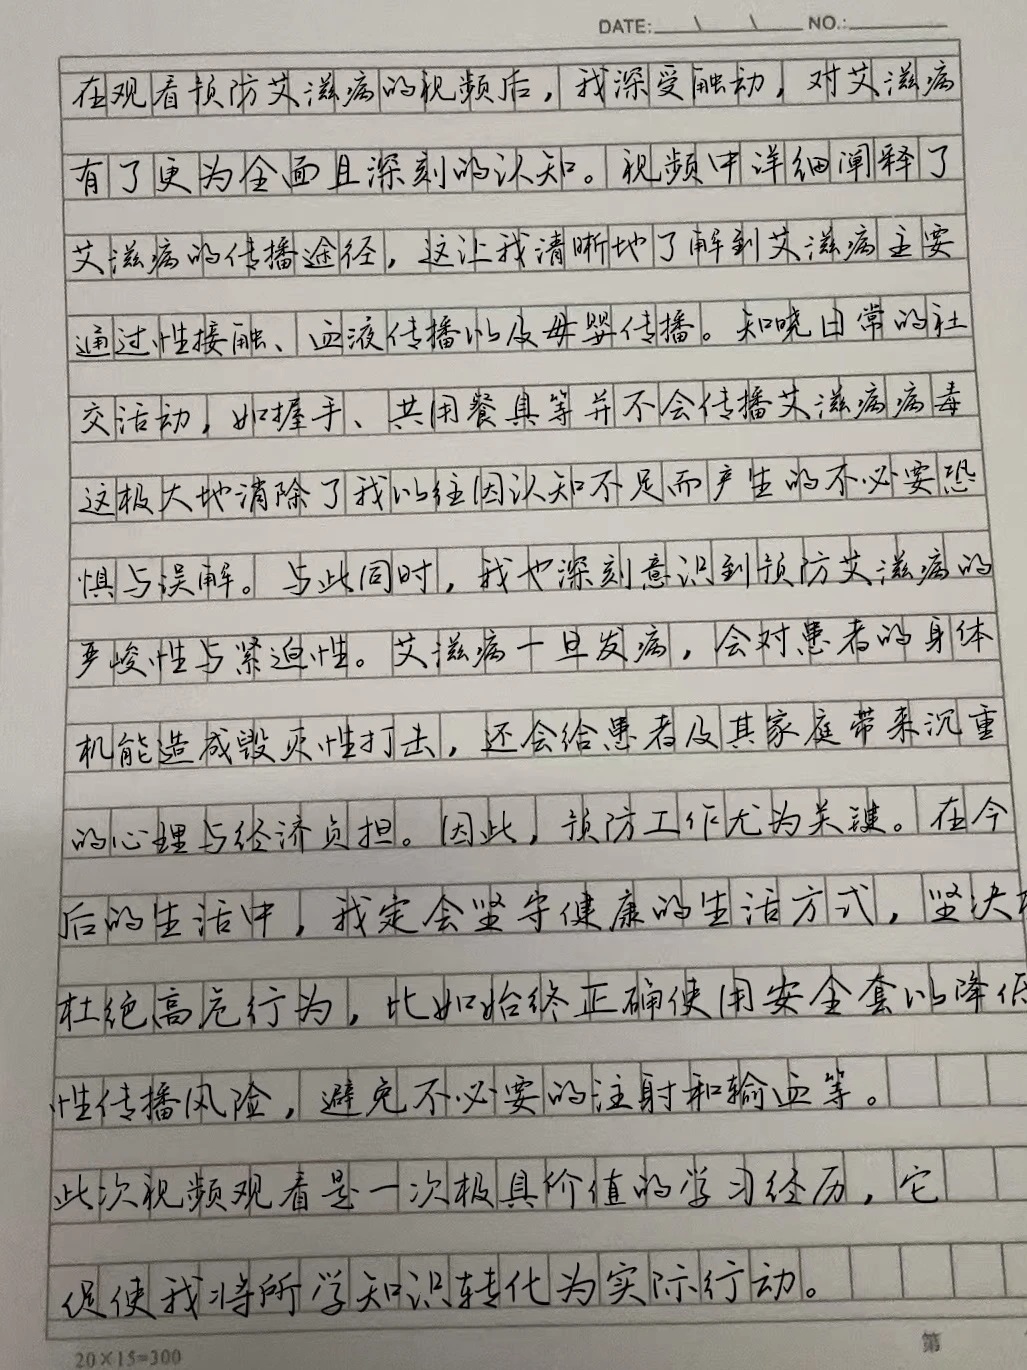 DATE: \ \ NO.:
在观看预防艾滋病的视频后，我深受触动，对艾滋病
有了更为全面且深刻的认知。视频中详细阐释了
艾滋病的传播途径，这让我清晰地了解到艾滋病主要
通过性接触、血液传播以及母婴传播。知晓日常的社
交活动，如握手、共用餐具等并不会传播艾滋病病毒
这极大地消除了我以往因认知不足而产生的不必要恐
惧与误解。与此同时，我也深刻意识到预防艾滋病的
严峻性与紧迫性。艾滋病一旦发病，会对患者的身体
机能造成毁灭性打击，还会给患者及其家庭带来沉重
的心理与经济负担。因此，预防工作尤为关键。在今
后的生活中，我定会坚守健康的生活方式，坚决
杜绝高危行为，比如始终正确使用安全套以降低
性传播风险，避免不必要的注射和输血等。
此次视频观看是一次极具价值的学习经历，它
促使我将所学知识转化为实际行动。
20×15=300
第